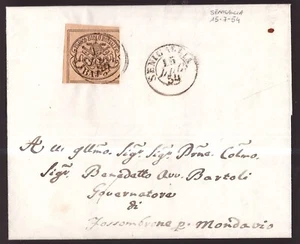 SENIGALLIA
15-7-54
BAJ
SENIGALLIA
15
LUG
54
A ll' Illmo. Sigr. Sigr. Prne. Colmo.
Sigr. Benedetto Avv. Bartoli
Governatore
di
Fossombrone p. Mondavio